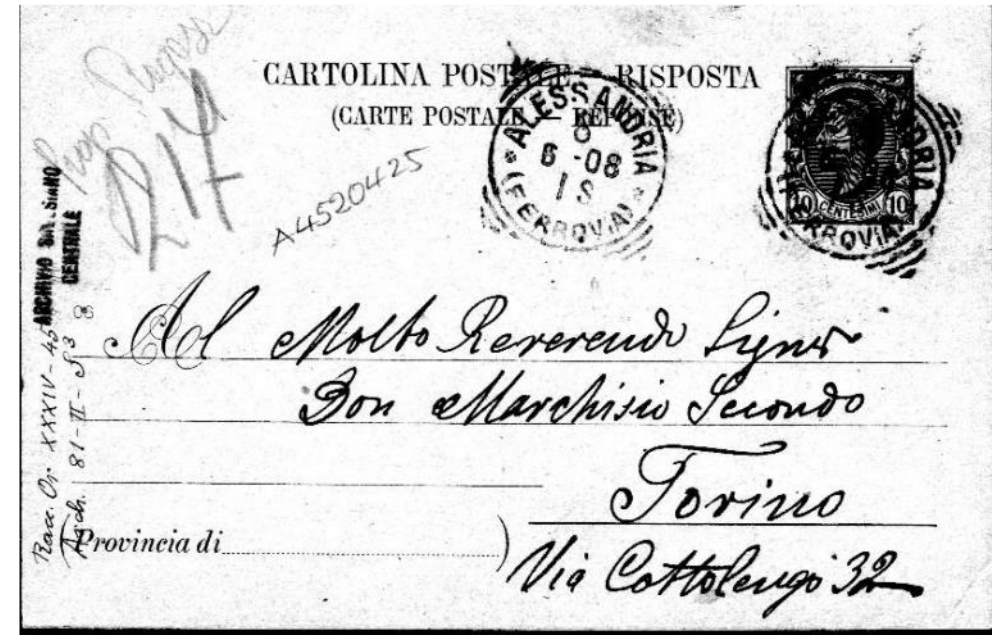 CARTOLINA POSTALE - RISPOSTA
(CARTE POSTALE — RÉPONSE)
ALESSANDRIA
6 -08
(FERROVIA)
10 CENTESIMI 10
D14
A4520425
ARCHIVIO SALESIANO
CENTRALE
Arch. 81-II-S3
Al Molto Reverendo Signor
Don Marchisio Secondo
Torino
Provincia di
Via Cottolengo 32